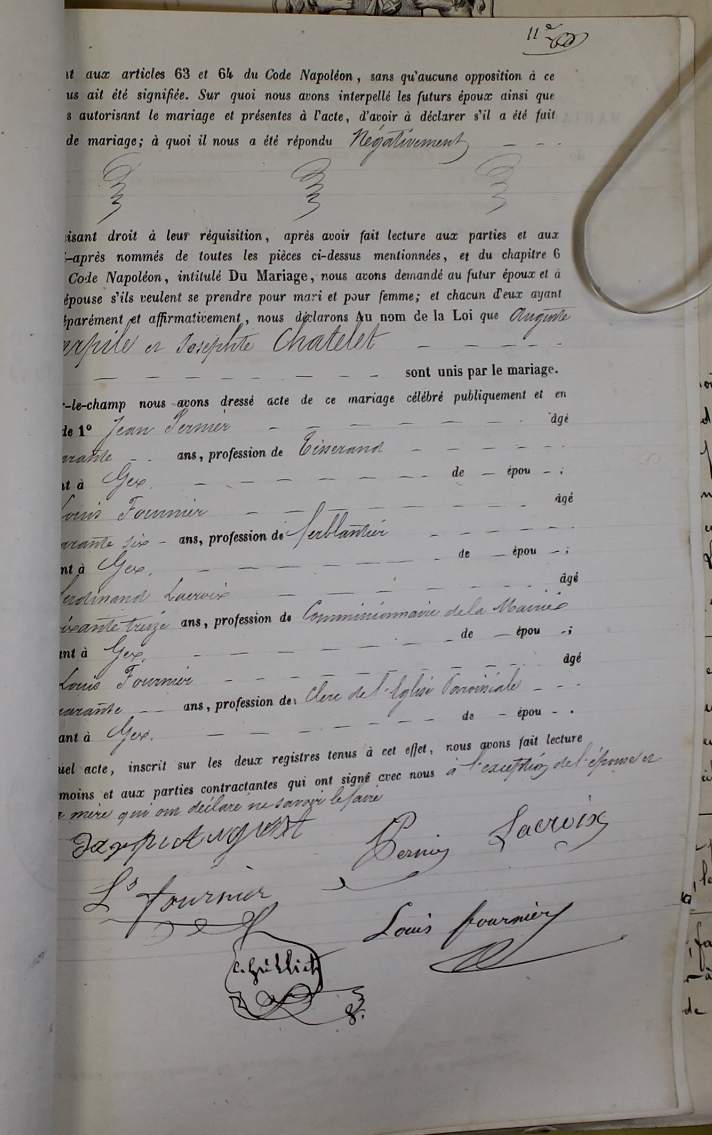 11e
nt aux articles 63 et 64 du Code Napoléon, sans qu'aucune opposition à ce
us ait été signifiée. Sur quoi nous avons interpellé les futurs époux ainsi que
s autorisant le mariage et présentes à l'acte, d'avoir à déclarer s'il a été fait
de mariage; à quoi il nous a été répondu Négativement
isant droit à leur réquisition, après avoir fait lecture aux parties et aux
i-après nommés de toutes les pièces ci-dessus mentionnées, et du chapitre 6
Code Napoléon, intitulé Du Mariage, nous avons demandé au futur époux et à
épouse s'ils veulent se prendre pour mari et pour femme; et chacun d'eux ayant
éparément et affirmativement, nous déclarons Au nom de la Loi que Auguste
et Josephte Chatelet
sont unis par le mariage.
r-le-champ nous avons dressé acte de ce mariage célébré publiquement et en
de 1° Jean Pernier âgé
arante ans, profession de Tisserand
nt à Gex. de épou ;
Louis Fournier âgé
arante six ans, profession de ferblantier
nt à Gex. de épou ;
Ferdinand Lacroix âgé
ixante treize ans, profession de Commissionnaire de la Mairie
ant à Gex. de épou ;
Louis Fournier âgé
uarante ans, profession de Clerc de l'Eglise Paroissiale
ant à Gex. de épou .
uel acte, inscrit sur les deux registres tenus à cet effet, nous avons fait lecture
moins et aux parties contractantes qui ont signé avec nous à l'exception de l'épouse et
mère qui ont déclaré ne savoir le faire
Lacroix
Pernier
Ls fournier
Louis fournier